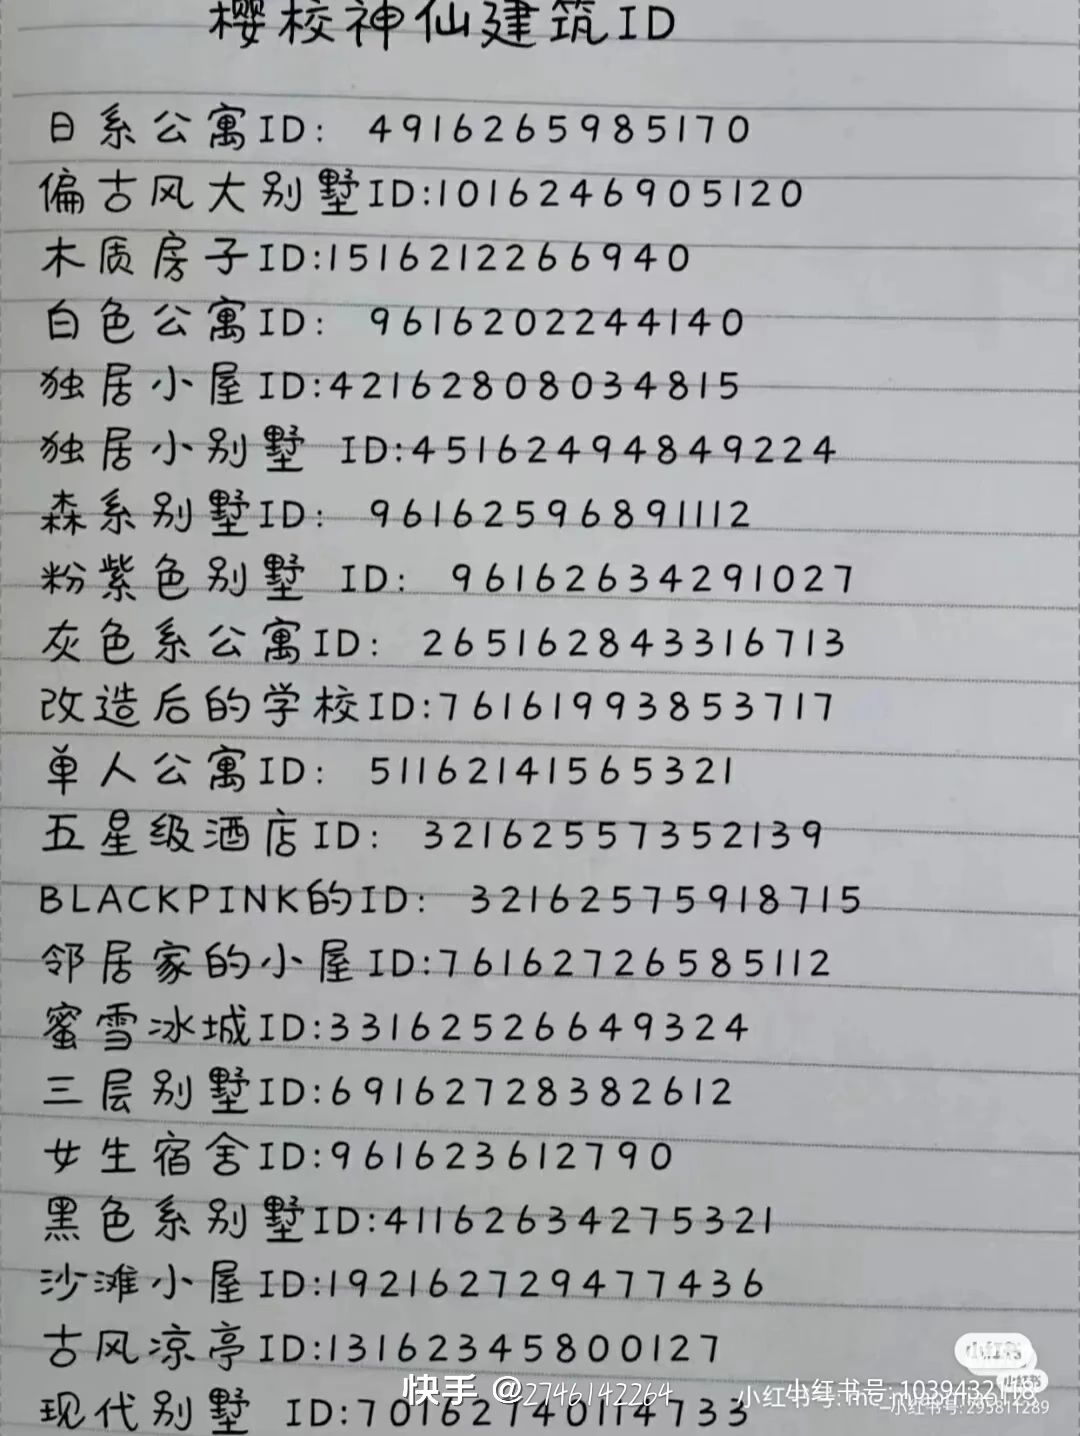 樱校神仙建筑ID
日系公寓ID: 4916265985170
偏古风大别墅ID:10162469051​20
木质房子ID:1516212266940
白色公寓ID: 9616202244140
独居小屋ID:42162808034815
独居小别墅 ID:45162494849224
森系别墅ID: 96162596891112
粉紫色别墅 ID: 96162634291027
灰色系公寓ID: 265162843316713
改造后的学校ID:76161993853717
单人公寓ID: 51162141565321
五星级酒店ID: 32162557352139
BLACKPINK的ID: 32162575918715
邻居家的小屋ID:76162726585112
蜜雪冰城ID:33162526649324
三层别墅ID:69162728382612
女生宿舍ID:961623612790
黑色系别墅ID:41162634275321
沙滩小屋ID:192162729477436
古风凉亭ID:13162345800127
现代别墅 ID:70162740114733
快手 @2746142264
小红书
小红书号: 1039432118
小红书号:295811289